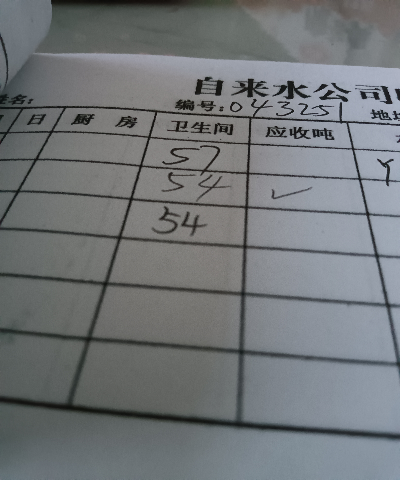 自来水公司
姓名: 编号: 043251 地址
日 厨房 卫生间 应收吨
57
54 ✓
54